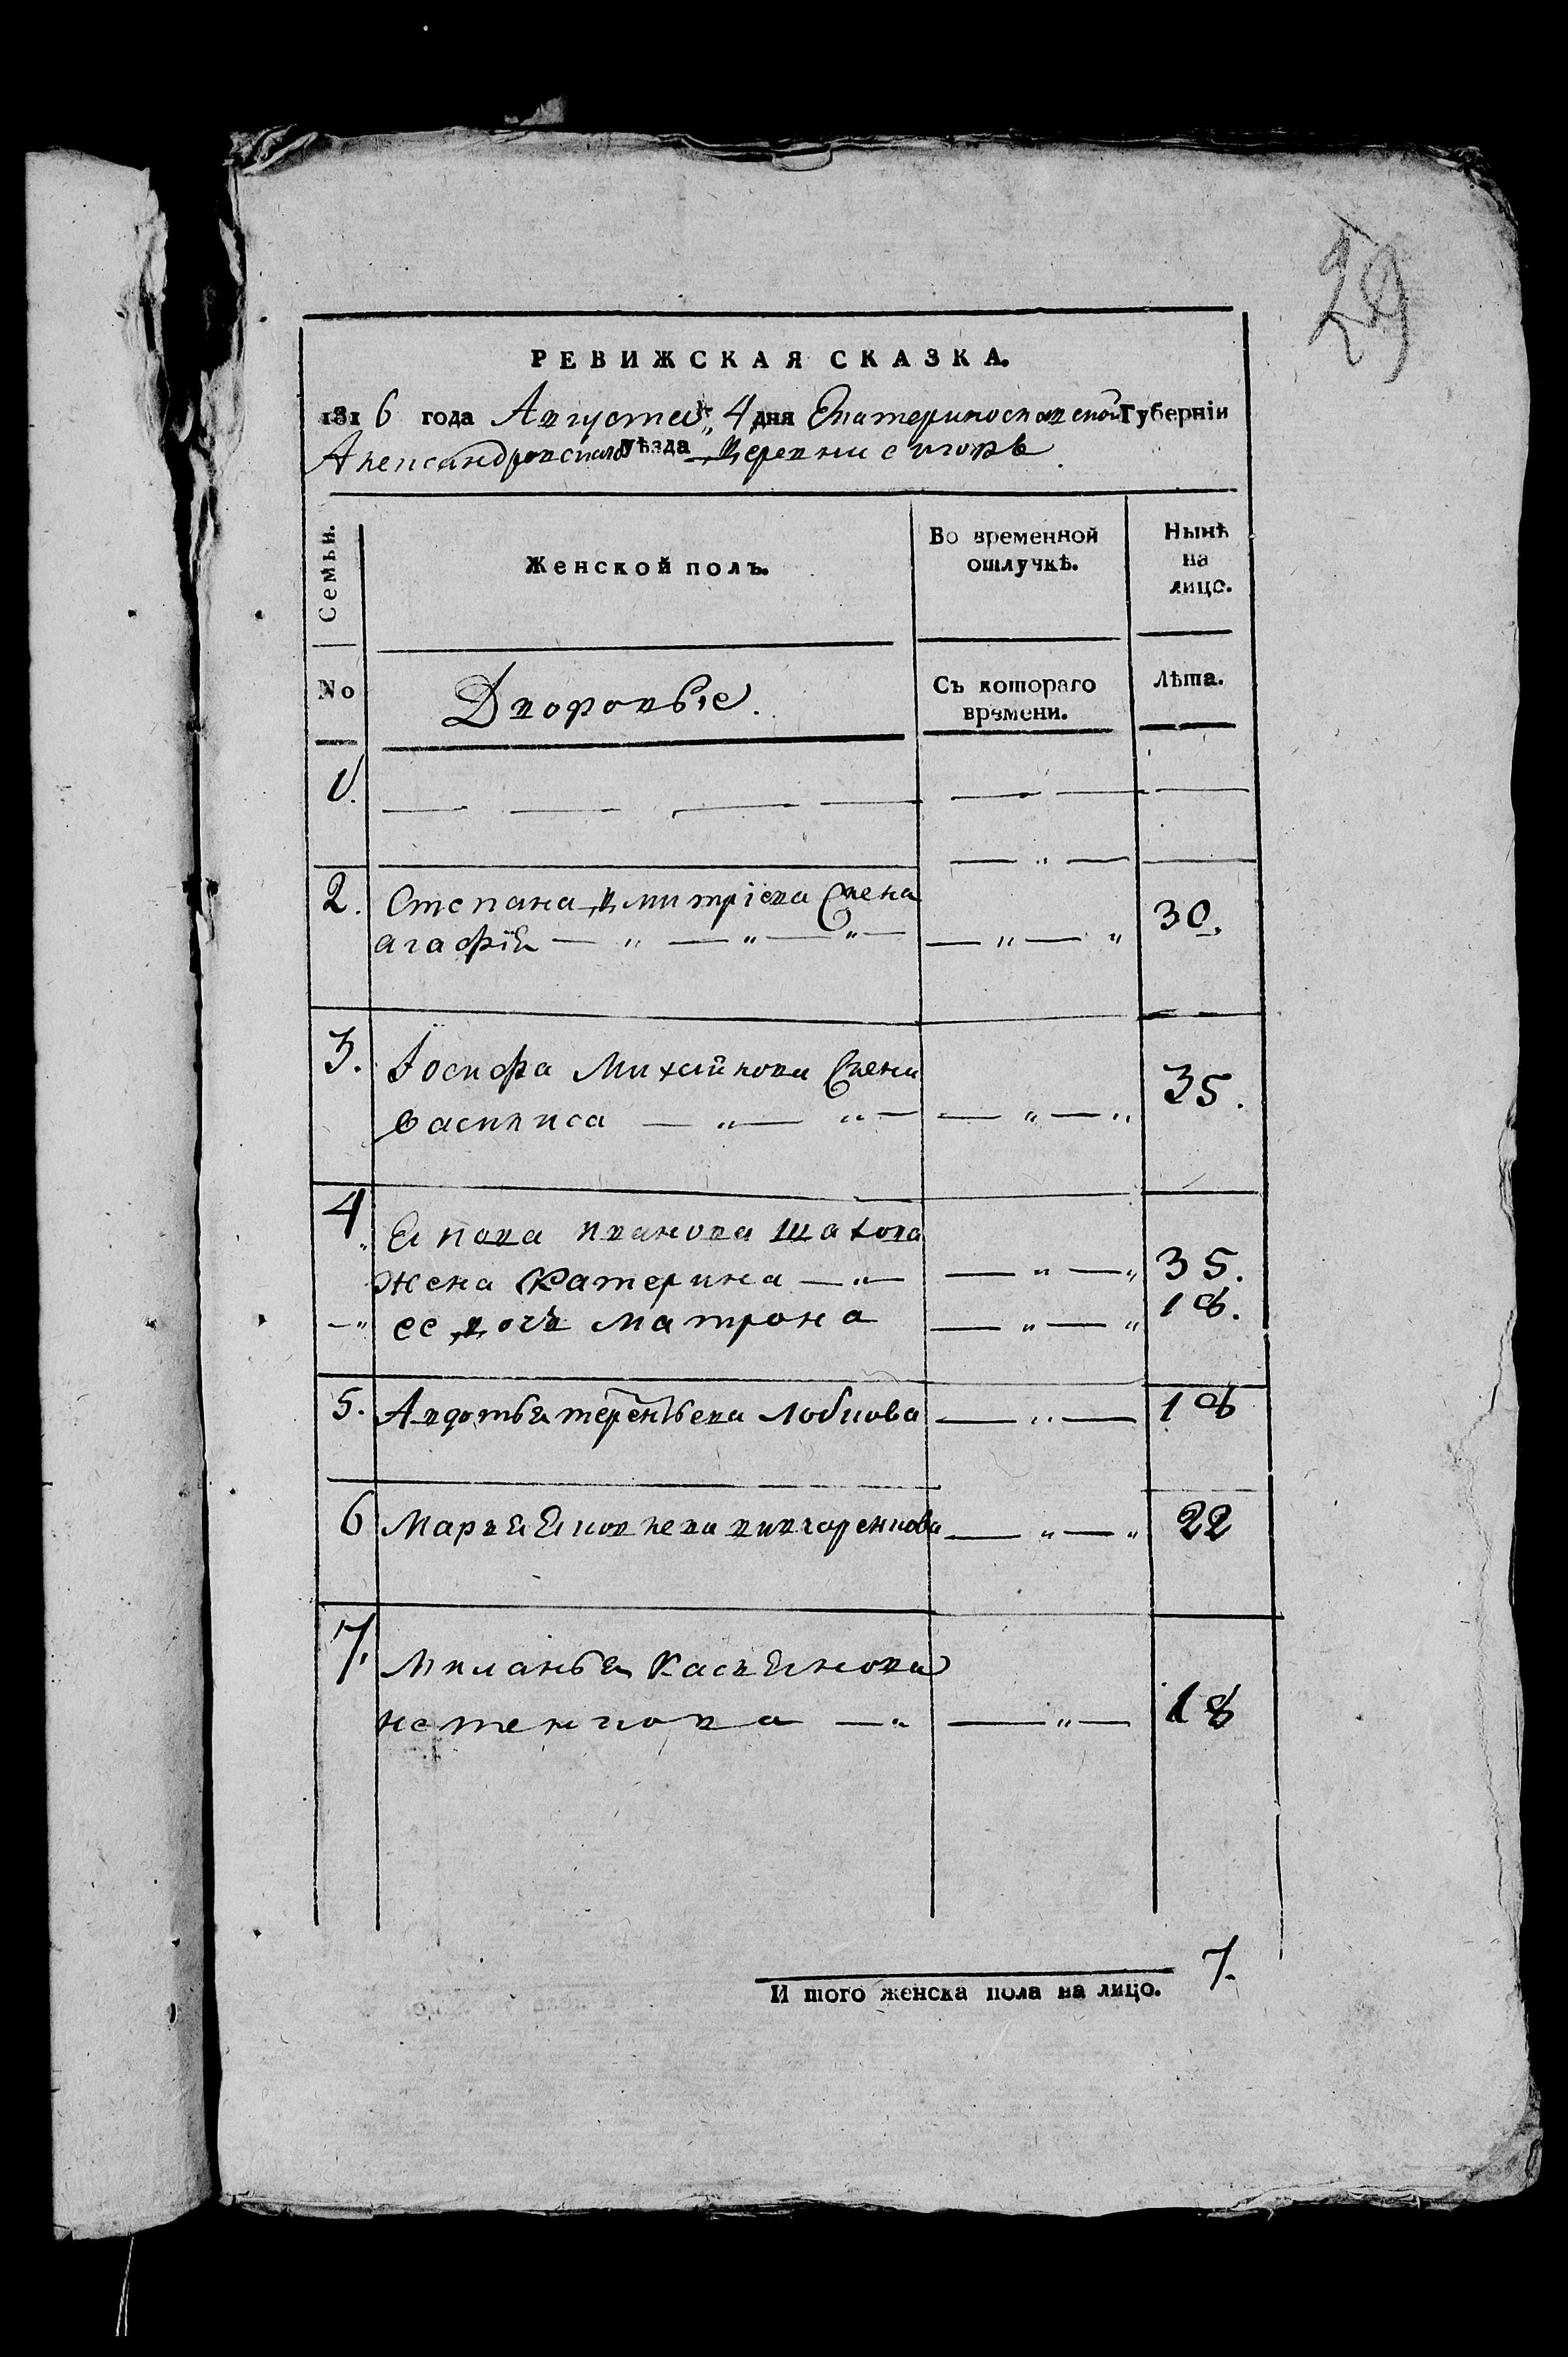 29
РЕВИЖСКАЯ СКАЗКА.
1816 года Августа 4 дня Екатеринославской Губерніи
Александровскаго уѣзда Деревни
Семьи.
Женской полъ.
Во временной отлучкѣ.
Нынѣ на лицо.
No
Дворовые.
Съ котораго времени.
Лѣта.
1.
2. Степана Дмитріева Жена
агафія 30.
3. Іосифа Михайлова Жена
василиса 35.
4 Якова иванова шахова
жена Катерина 35.
ее дочь Матрона 18.
5. Авдотья терентьева Лобкова 18
6 Марья Яковлева 22
7. Миланья Касьянова
18
И того женска пола на лицо. 7.